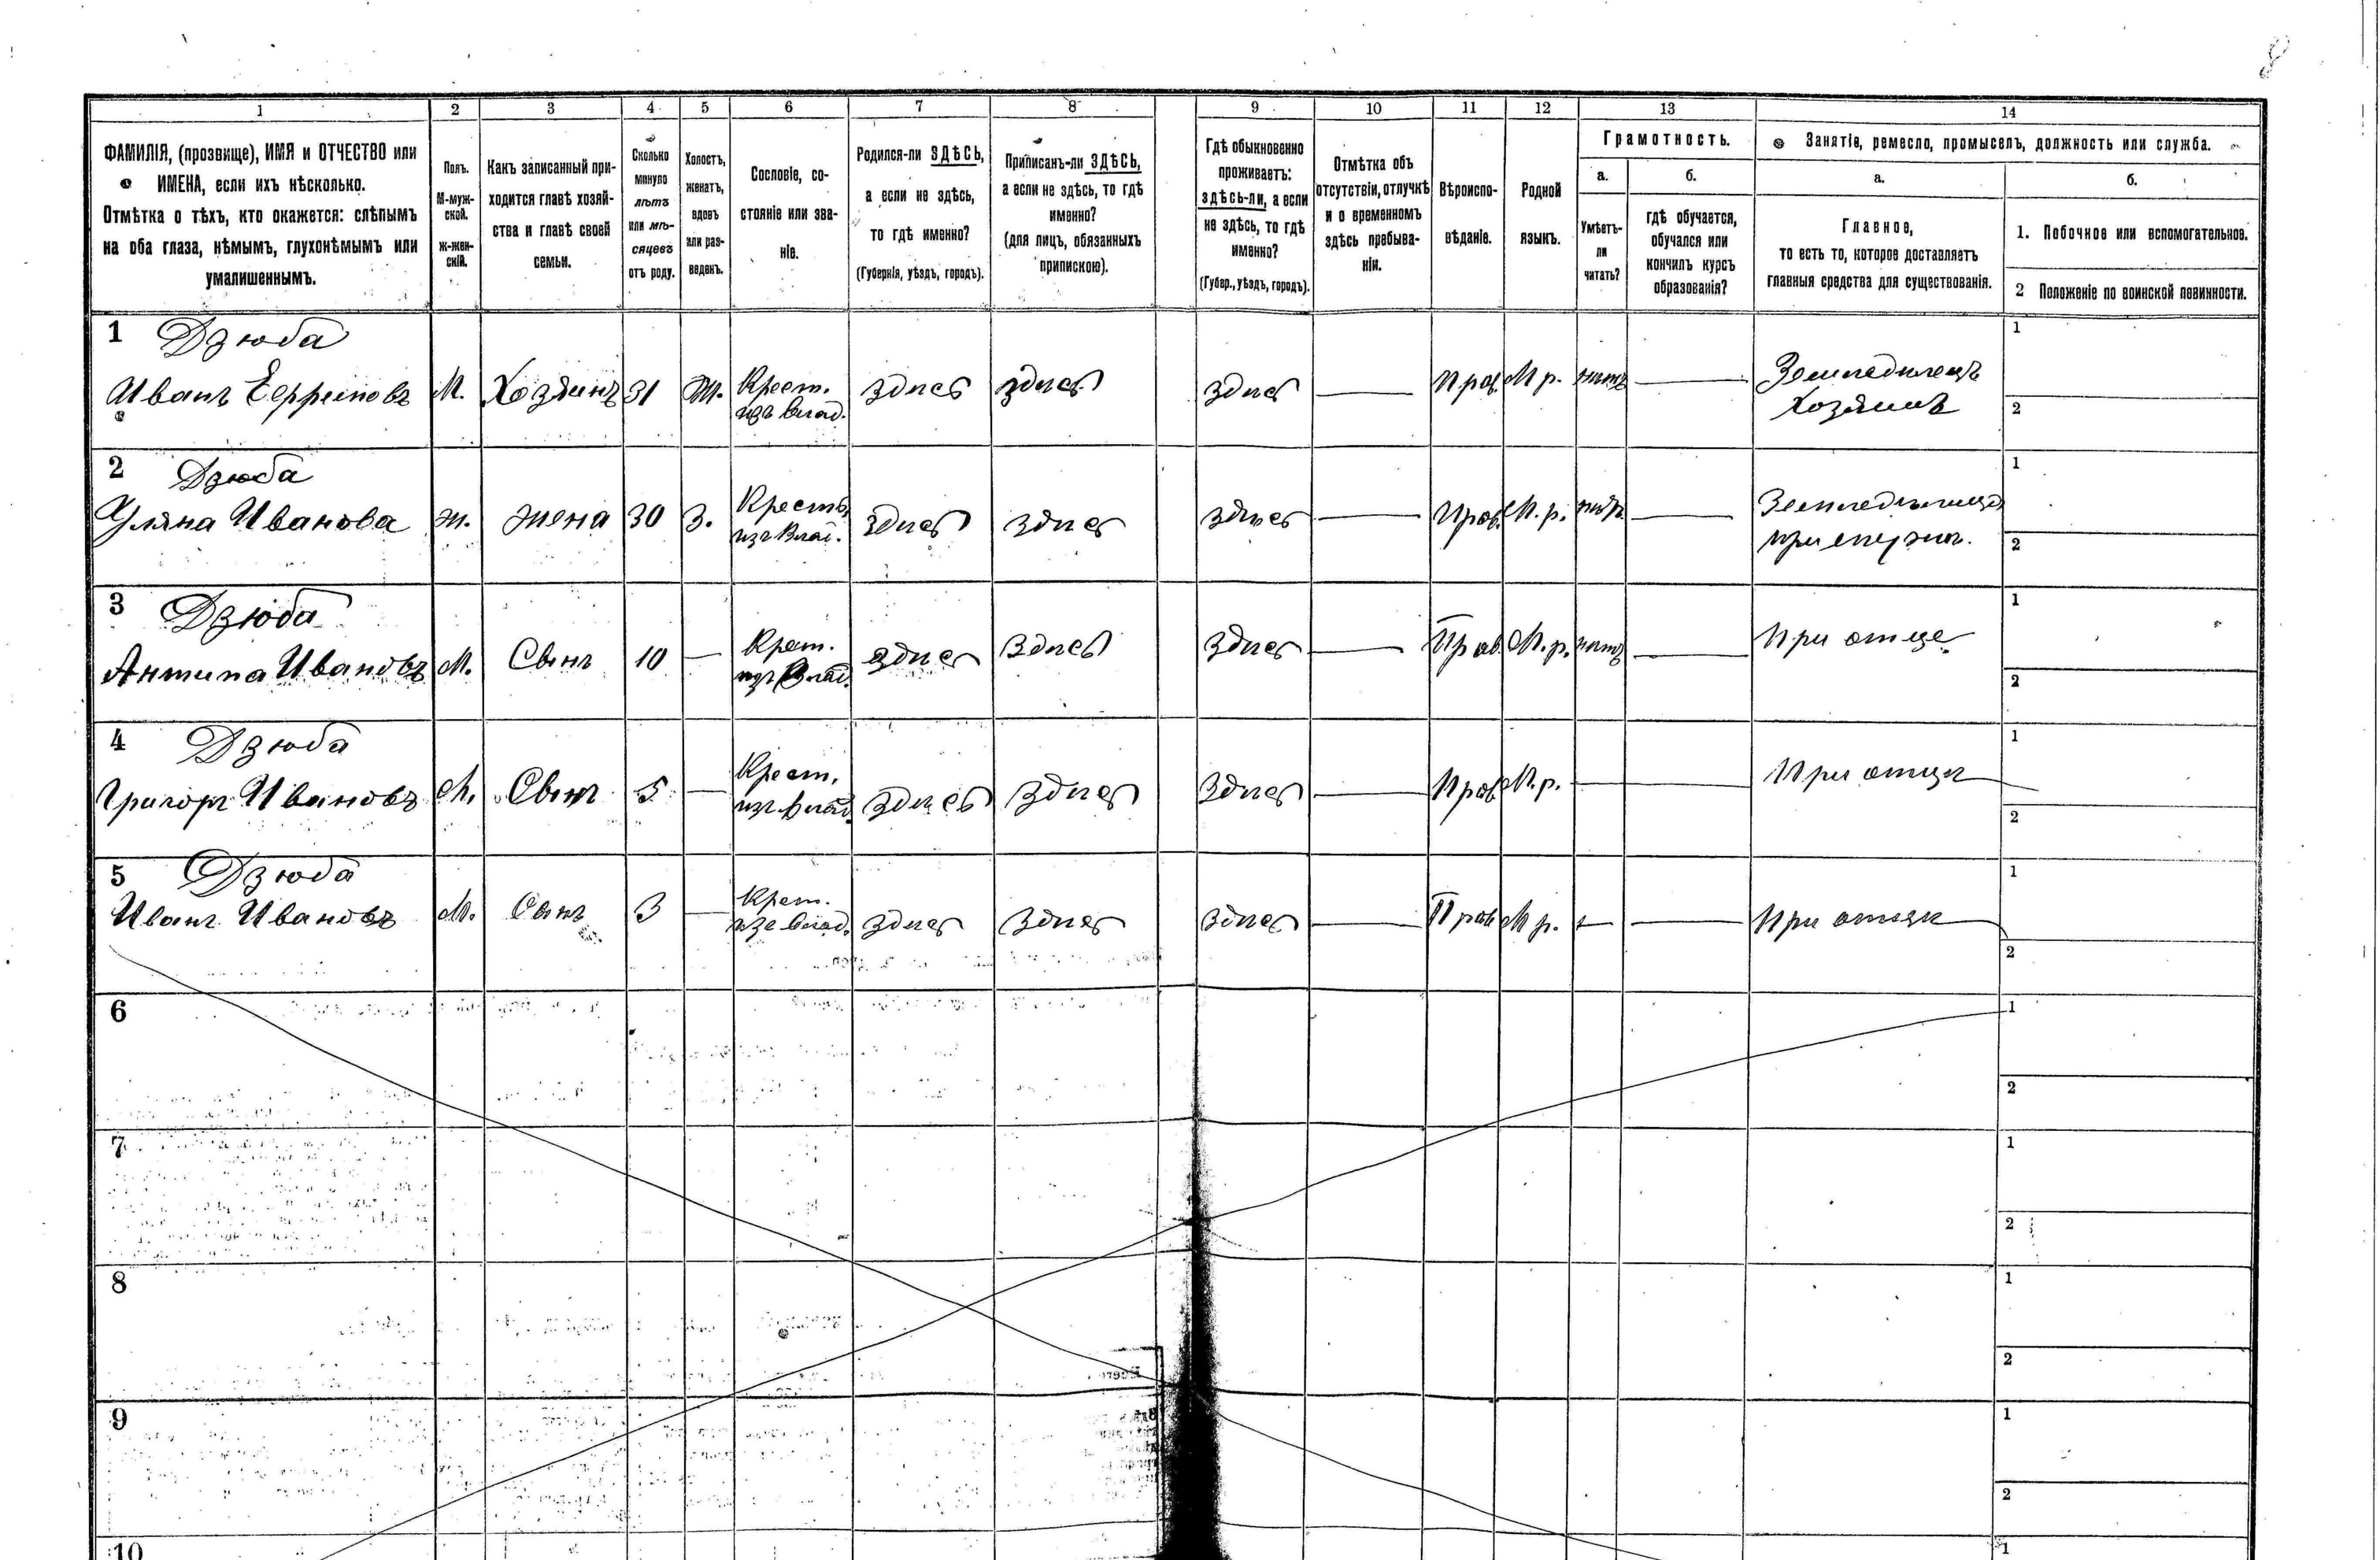 8
1
2
3
4
5
6
7
8
9
10
11
12
13
14
ФАМИЛІЯ, (прозвище), ИМЯ и ОТЧЕСТВО или
ИМЕНА, если ихъ нѣсколько.
Отмѣтка о тѣхъ, кто окажется: слѣпымъ
на оба глаза, нѣмымъ, глухонѣмымъ или
умалишеннымъ.
Полъ.
М-муж-
ской.
ж-жен-
скій.
Какъ записанный при-
ходится главѣ хозяй-
ства и главѣ своей
семьи.
Сколько
минуло
лѣтъ
или мѣ-
сяцевъ
отъ роду.
Холостъ,
женатъ,
вдовъ
или раз-
веденъ.
Сословіе, со-
стояніе или зва-
ніе.
Родился-ли ЗДѢСЬ,
а если не здѣсь,
то гдѣ именно?
(Губернія, уѣздъ, городъ).
Приписанъ-ли ЗДѢСЬ,
а если не здѣсь, то гдѣ
именно?
(для лицъ, обязанныхъ
припискою).
Гдѣ обыкновенно
проживаетъ:
здѣсь-ли, а если
не здѣсь, то гдѣ
именно?
(Губер., уѣздъ, городъ).
Отмѣтка объ
отсутствіи, отлучкѣ
и о временномъ
здѣсь пребыва-
ніи.
Вѣроиспо-
вѣданіе.
Родной
языкъ.
Грамотность.
а.
Умѣетъ-
ли
читать?
б.
гдѣ обучается,
обучался или
кончилъ курсъ
образованія?
Занятіе, ремесло, промыселъ, должность или служба.
а.
Главное,
то есть то, которое доставляетъ
главныя средства для существованія.
б.
1. Побочное или вспомогательное.
2 Положеніе по воинской повинности.
1 Дзюба
Иванъ Ефримовъ М. Хозяинъ 31 Ж. Крест. здѣсь здѣсь здѣсь — Прав М р. нѣтъ — Земледѣлецъ
изъ влад. Хозяинъ
1
2
2 Дзюба
Уляна Иванова ж. жена 30 З. Крестъ. здѣсь здѣсь здѣсь — Прав. М. р. нѣтъ — Земледѣлица
изъ влад. при
1
2
3 Дзюба
Антипа Ивановъ М. Сынъ 10 — Крест. здѣсь здѣсь здѣсь — Прав. М. р. нѣтъ — При отце
изъ влад.
1
2
4 Дзюба
Григоръ Ивановъ М. Сынъ 5 — Крест. здѣсь здѣсь здѣсь — Прав М. р. — При отцѣ
изъ влад.
1
2
5 Дзюба
Иванъ Ивановъ М. Сынъ 3 — Крест. здѣсь здѣсь здѣсь — Прав М р. — — При отцѣ
изъ влад.
1
2
6
1
2
7
1
2
8
1
2
9
1
2
10
1